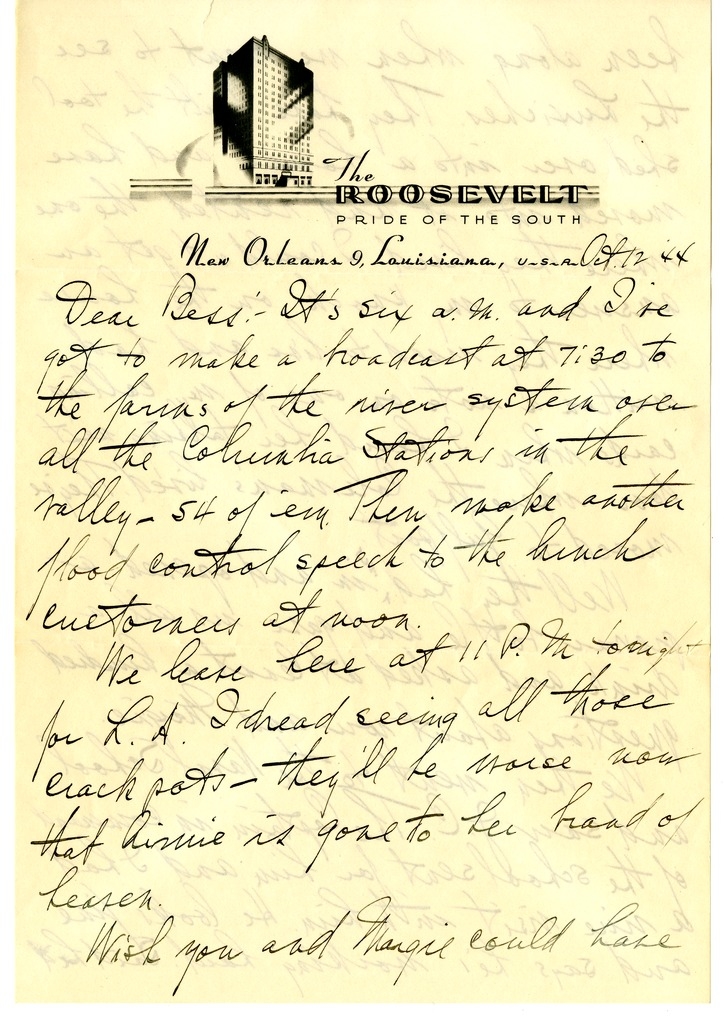 The
ROOSEVELT
PRIDE OF THE SOUTH
New Orleans 9, Louisiana, U.S.A. Oct. 12 '44
Dear Bess:- It's six a.m. and I've
got to make a broadcast at 7:30 to
the farms of the river system over
all the Columbia Stations in the
valley - 54 of 'em. Then make another
flood control speech to the lunch
customers at noon.
We leave here at 11 P.M. tonight
for L.A. I dread seeing all those
crack pots - they'll be worse now
that Aimie is gone to her brand of
heaven.
Wish you and Margie could have